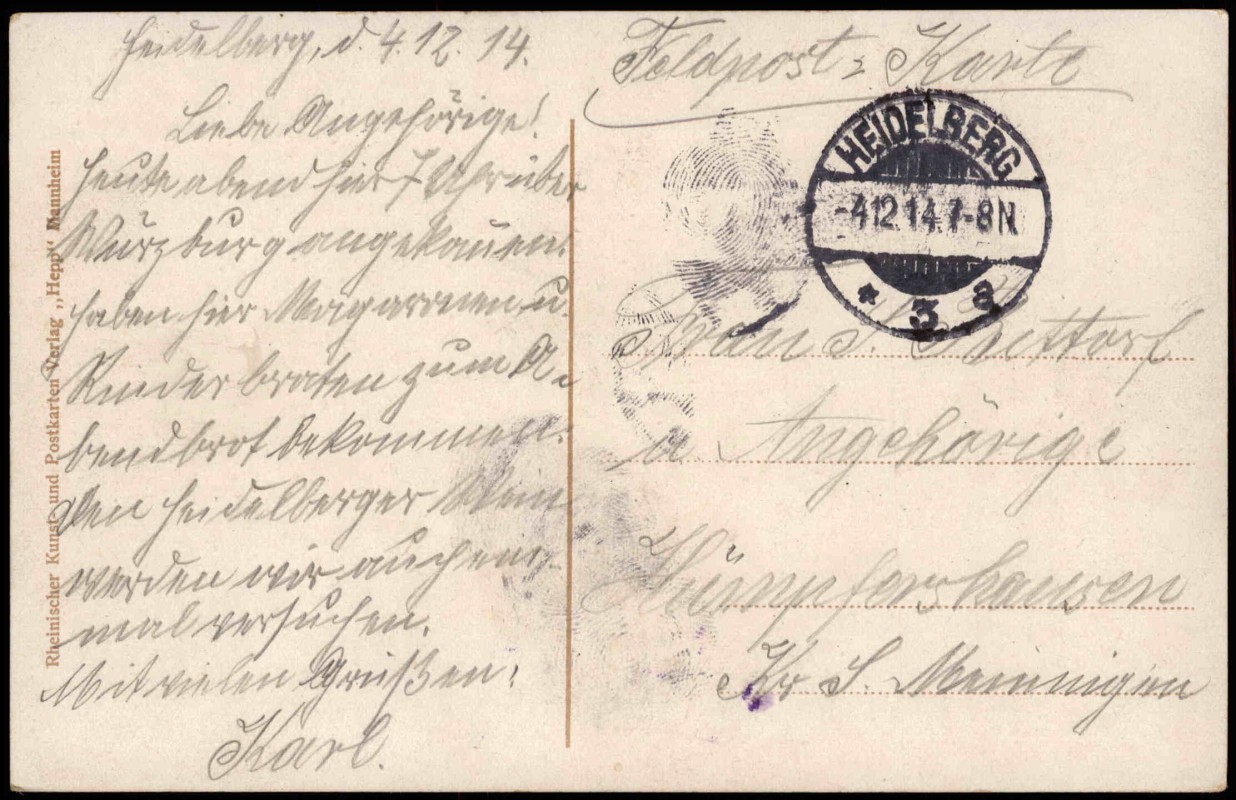 Heidelberg, d. 4.12.14.
Liebe Angehörige!
Heute abend hier 7 Uhr über
Würzburg angekommen.
haben hier Magaronen u.
Rinderbraten zum A-
bendbrot bekommen.
Den Heidelberger Wein
werden wir auch ein-
mal versuchen.
Mit vielen Grüßen:
Karl.
Rheinischer Kunst- und Postkarten Verlag „Hepp“ Mannheim
Feldpost = Karte
HEIDELBERG
-4.12.14.7-8N.
* 3 a
Frau S.
u Angehörige
Hümpfershausen
Kr S. Meiningen